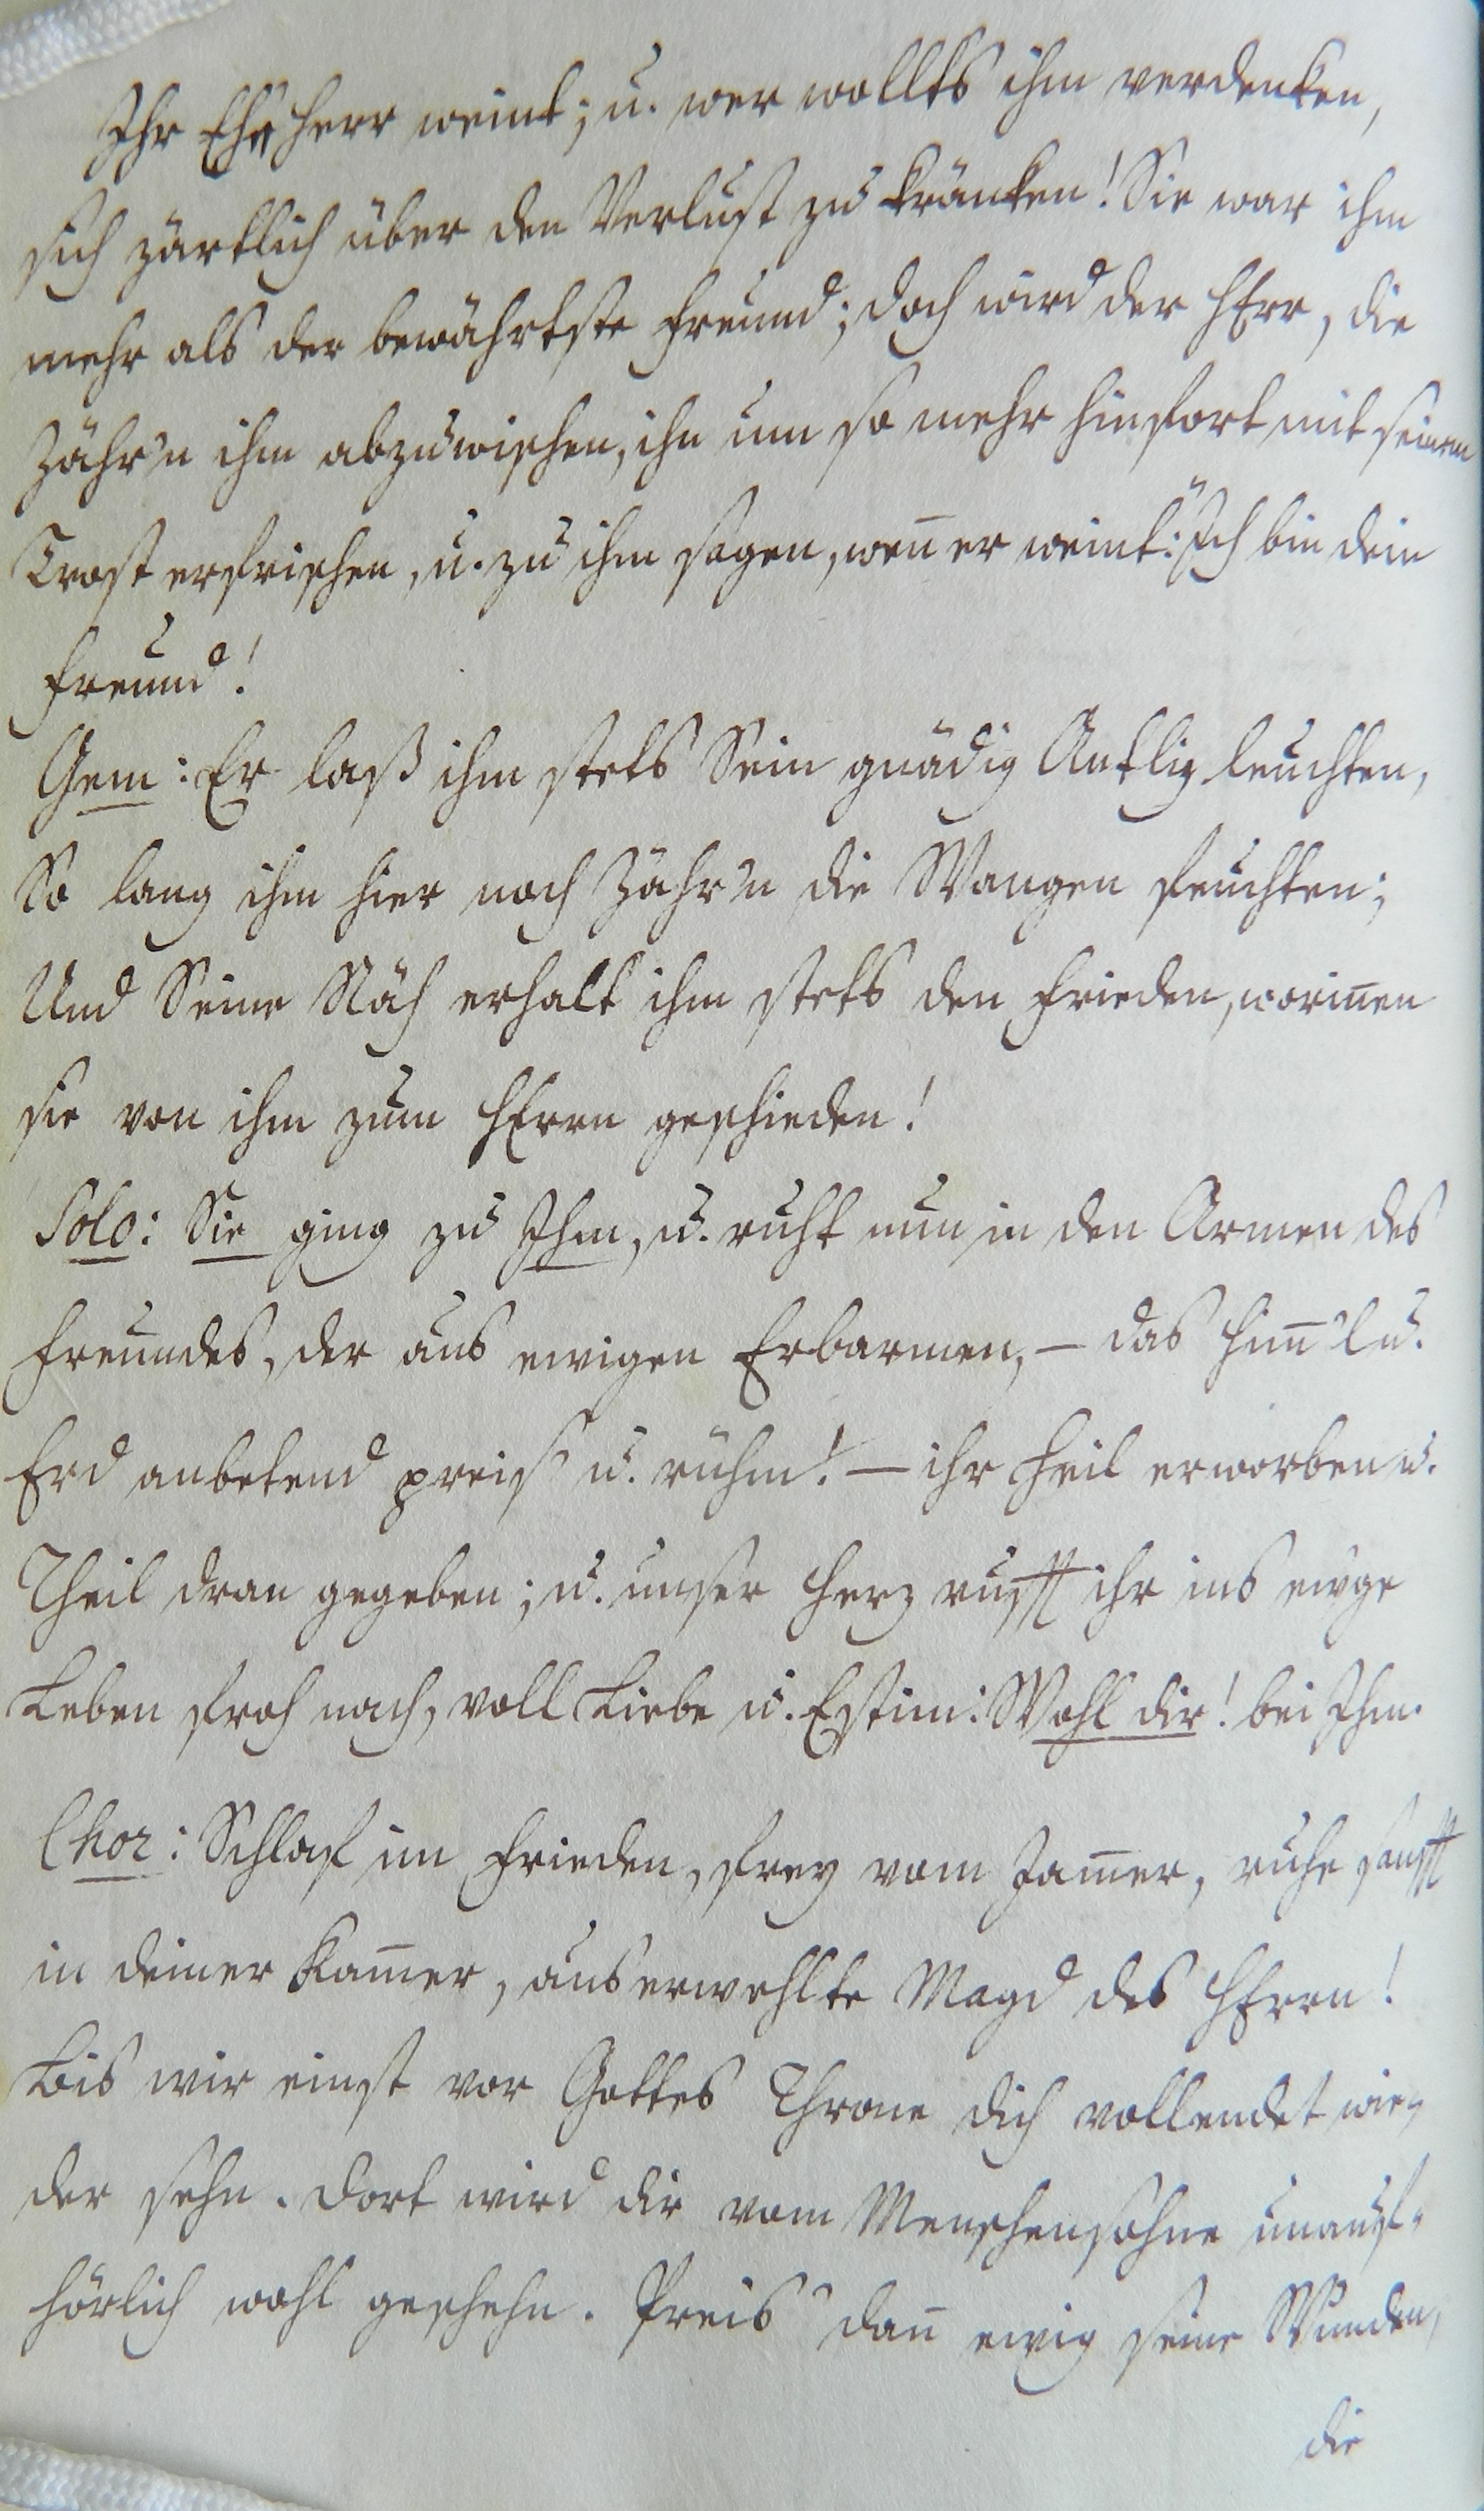 Ihr Ehherr weint; u. wer wollts ihm verdenken,
sich zärtlich über den Verlust zu kränken! Sie war ihm
mehr als der bewährtste Freund; doch wird der HErr, die
Zähr'n ihm abzuwischen, ihn um so mehr hinfort mit seinem
Trost erfrischen, u. zu ihm sagen, weñ er weint: "Ich bin dein
Freund!
Gem: Er laß ihm stets Sein gnädig Antliz leuchten,
So lang ihm hier noch Zähr'n die Wangen feuchten;
Und Seine Näh erhalt ihm stets den Frieden, woriñen
sie von ihm zum HErrn geschieden!
Solo: Sie ging zu Ihm, u. ruht nun in den Armen des
Freundes, der aus ewigen Erbarmen, – das Him̄'l u.
Erd anbetend preis' u. rühm'! – ihr Heil erworben u.
Theil dran gegeben; u. unser Herz rufft ihr ins ewge
Leben froh nach, voll Liebe u. Estim: Wohl dir! bei Ihm.
Chor: Schlaf im Frieden, frey vom Jam̄er, ruhe sanfft
in deiner Kam̄er, auserwehlte Magd des HErrn!
Bis wir einst vor Gottes Throne dich vollendet wie-
der sehn. Dort wird dir vom Menschensohne unauf-
hörlich wohl geschehn. Preis' dañ ewig seine Wunden,
die